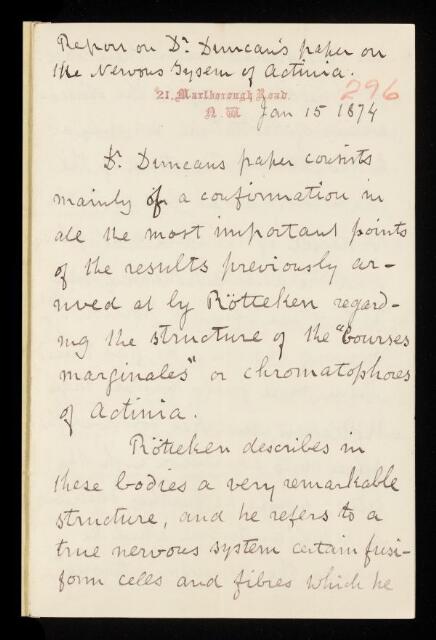 Report on Dr. Duncan's paper on
the Nervous Sysem of Actinia.
296
21, Marlborough Road.
N.W.
Jan 15 1874
Dr. Duncans paper consists
mainly of a confirmation in
all the most important points
of the results previously ar-
rived at by Rötteken regard-
ing the structure of the "bourses
marginales" or chromatophores
of Actinia.
Rötteken describes in
these bodies a very remarkable
structure, and he refers to a
true nervous system certain fusi-
form cells and fibres which he